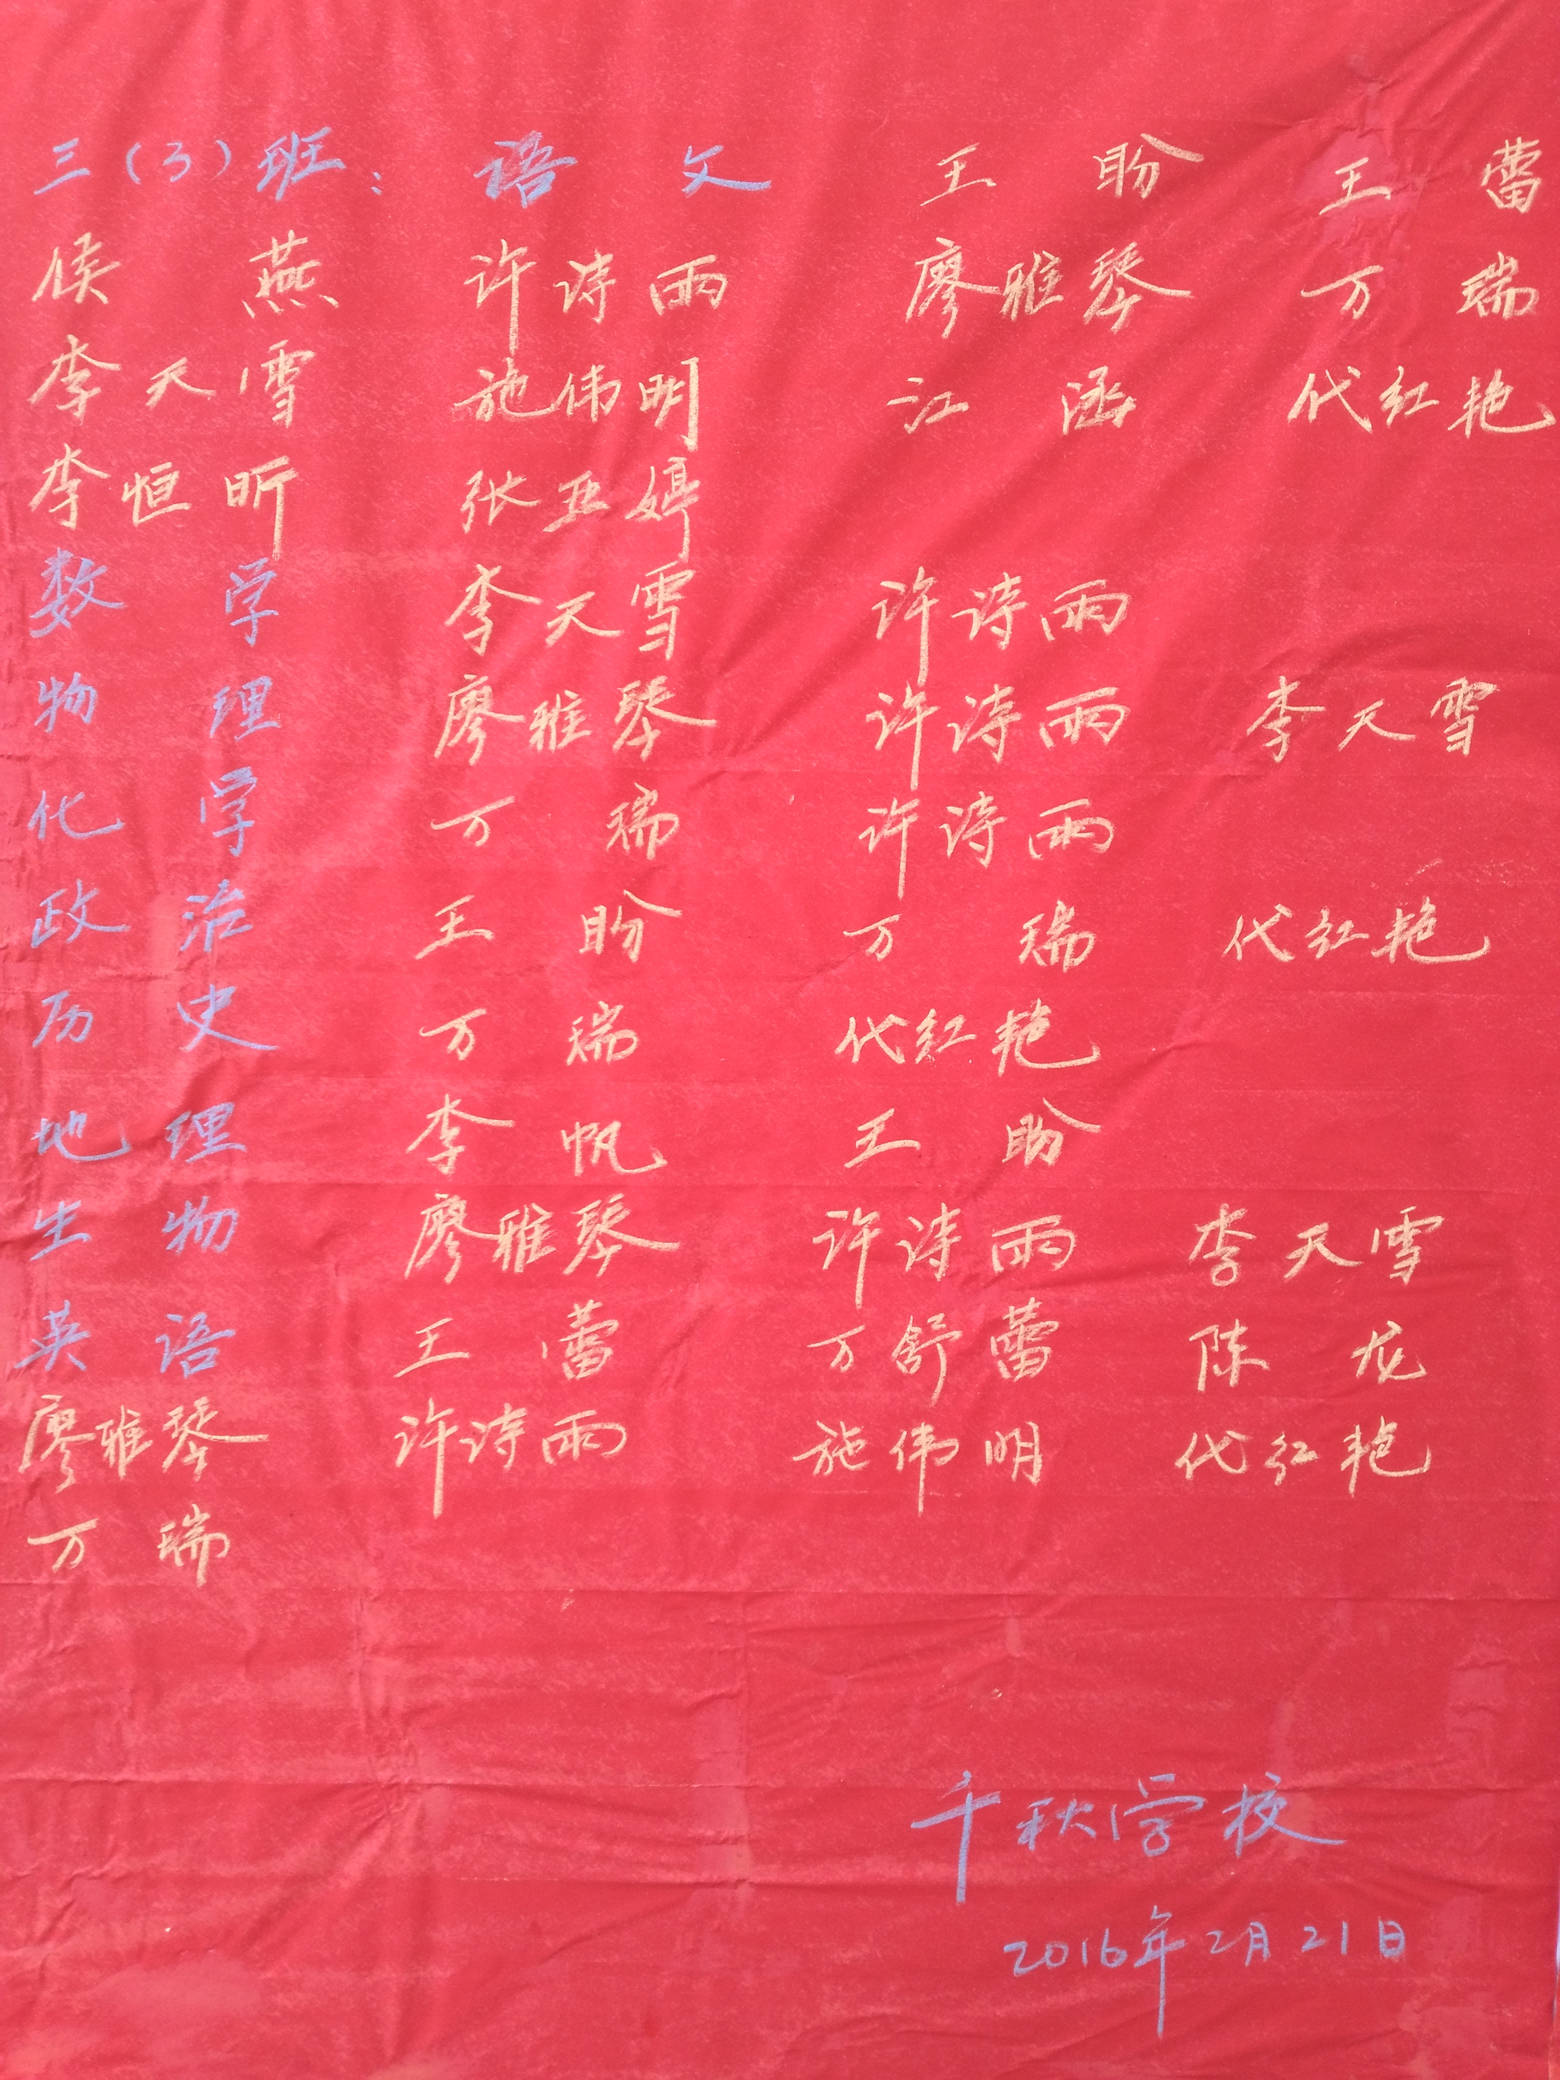 三(3)班: 语文 王盼 王蕾
侯燕 许诗雨 廖雅琴 万瑞
李天雪 施伟明 江涵 代红艳
李恒昕 张亚婷
数学 李天雪 许诗雨
物理 廖雅琴 许诗雨 李天雪
化学 万瑞 许诗雨
政治 王盼 万瑞 代红艳
历史 万瑞 代红艳
地理 李帆 王盼
生物 廖雅琴 许诗雨 李天雪
英语 王蕾 万舒蕾 陈龙
廖雅琴 许诗雨 施伟明 代红艳
万瑞
千秋学校
2016年2月21日